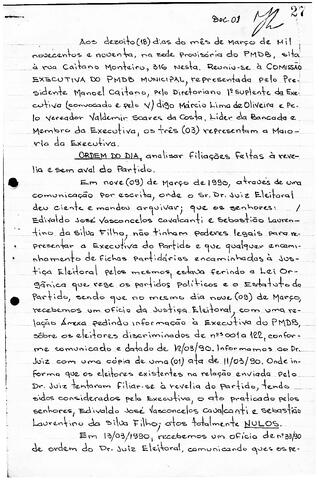 Doc. 01
27
Aos dezoito (18) dias do mês de Março de Mil
novecentos e noventa, na sede Provisória do PMDB, sita
à rua Caitano Monteiro, 316 Nesta. Reuniu-se à COMISSÃO
EXECUTIVA DO PMDB MUNICIPAL, representado pelo Pre-
sidente Manoel Caitano, pelo Diretoriano 1º Suplente da Exe-
cutiva (convocado e pelo V/digo Márcio Lima de Oliveira e Pe-
lo Vereador Valdemir Soares da Costa, Líder da Bancada e
Membro da Executiva, os três (03) representam a Maio-
ria da Executiva.
ORDEM DO DIA, analizar filiações feitas à reve-
lia e sem aval do Partido.
Em nove (09) de Março de 1990, através de uma
comunicação por escrita, onde o Sr. Dr. Juiz Eleitoral
deu ciente e mandou arquivar; que os senhores:
Edivaldo José Vasconcelos Cavalcanti e Sebastião Laurentino
da Silva Filho, não tinham poderes legais para re-
presentar a Executiva do Partido e que qualquer encami-
nhamento de fichas Partidárias encaminhadas à Jus-
tiça Eleitoral pelos mesmos, estava ferindo a Lei Or-
gânica que rege os partidos Políticos e o Estatuto do
Partido, sendo que no mesmo dia nove (09) de Março,
recebemos um ofício da Justiça Eleitoral, com uma re-
lação Anexa pedindo informação à Executiva do PMDB,
sôbre os eleitores discriminados de nºs 001 a 122, confor-
me comunicado e datado de 12/03/90. Informamos ao Dr.
Juiz com uma cópia de uma (01) ata de 11/03/90. Onde in-
forma que os eleitores existentes na relação enviada pelo
Dr. Juiz tentaram filiar-se à revelia do Partido, tendo
sidos considerados pela Executiva, o ato praticado pelos
senhores, Edivaldo José Vasconcelos Cavalcanti e Sebastião
Laurentino da Silva Filho; atos totalmente NULOS.
Em 13/03/1990, recebemos um ofício de nº 33/90
de ordem do Dr. Juiz Eleitoral, comunicando que os pe-